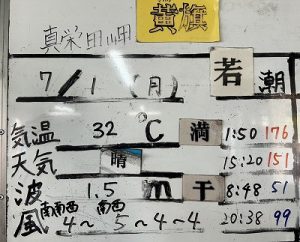 黄旗
真栄田岬
7/1(月) 若潮
気温 32 ℃ 満 1:50 176
天気 晴 15:20 151
波 1.5 m 干 8:48 51
風 南南西 南西 4～5～4～4 20:38 99